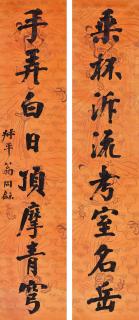 乘杯泝流考室名岳
手弄白日頂摩青穹
叔平翁同龢